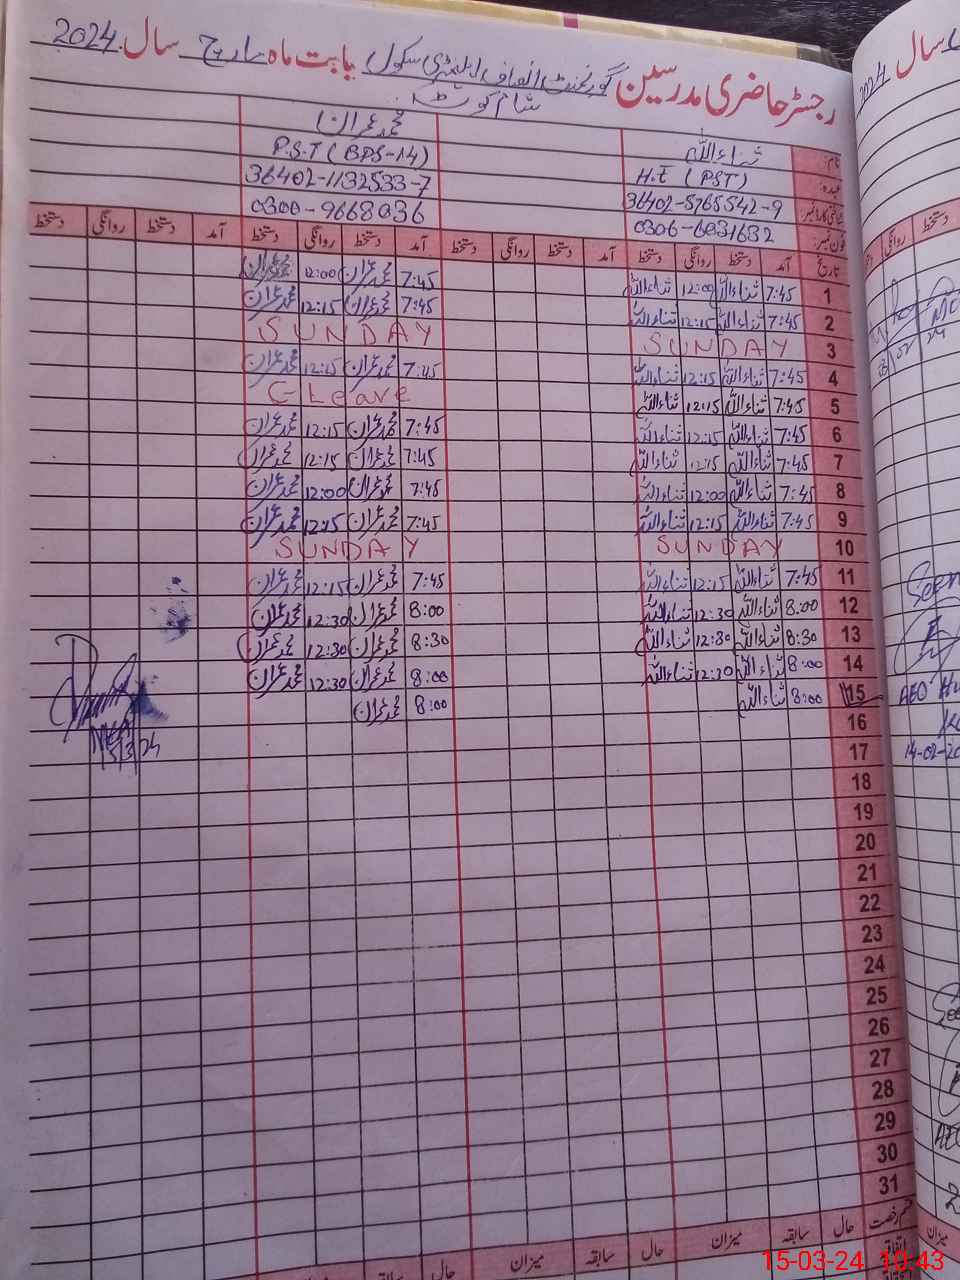 رجسٹر حاضری مدرسین گورنمنٹ انصاف ایلیمنٹری سکول بابت ماہ مارچ سال 2024
شام کوٹ
نام: ثناء اللہ محمد عمران
عہدہ: H.T (PST) P.S.T (BPS-14)
شناختی کارڈ نمبر: 36402-5765542-9 36402-1132533-7
فون نمبر: 0306-6931632 0300-9668036
تاریخ آمد دستخط روانگی دستخط آمد دستخط روانگی دستخط آمد دستخط روانگی دستخط آمد دستخط روانگی دستخط
1 7:45 ثناء اللہ 12:00 ثناء اللہ 7:45 محمد عمران 12:00 محمد عمران
2 7:45 ثناء اللہ 12:15 ثناء اللہ 7:45 محمد عمران 12:15 محمد عمران
3 SUNDAY SUNDAY
4 7:45 ثناء اللہ 12:15 ثناء اللہ 7:45 محمد عمران 12:15 محمد عمران
5 7:45 ثناء اللہ 12:15 ثناء اللہ C-Leave
6 7:45 ثناء اللہ 12:15 ثناء اللہ 7:45 محمد عمران 12:15 محمد عمران
7 7:45 ثناء اللہ 12:15 ثناء اللہ 7:45 محمد عمران 12:15 محمد عمران
8 7:45 ثناء اللہ 12:00 ثناء اللہ 7:45 محمد عمران 12:00 محمد عمران
9 7:45 ثناء اللہ 12:15 ثناء اللہ 7:45 محمد عمران 12:15 محمد عمران
10 SUNDAY SUNDAY
11 7:45 ثناء اللہ 12:15 ثناء اللہ 7:45 محمد عمران 12:15 محمد عمران
12 8:00 ثناء اللہ 12:30 ثناء اللہ 8:00 محمد عمران 12:30 محمد عمران
13 8:30 ثناء اللہ 12:30 ثناء اللہ 8:30 محمد عمران 12:30 محمد عمران
14 8:00 ثناء اللہ 12:30 ثناء اللہ 8:00 محمد عمران 12:30 محمد عمران
15 8:00 ثناء اللہ 8:00 محمد عمران
16
17
18
19
20
21
22
23
24
25
26
27
28
29
30
31
رخصت حال سابقہ میزان حال سابقہ میزان حال سابقہ
سال 2024
دستخط روانگی
AEO
14-02-20
میزان
15-03-24 10:43